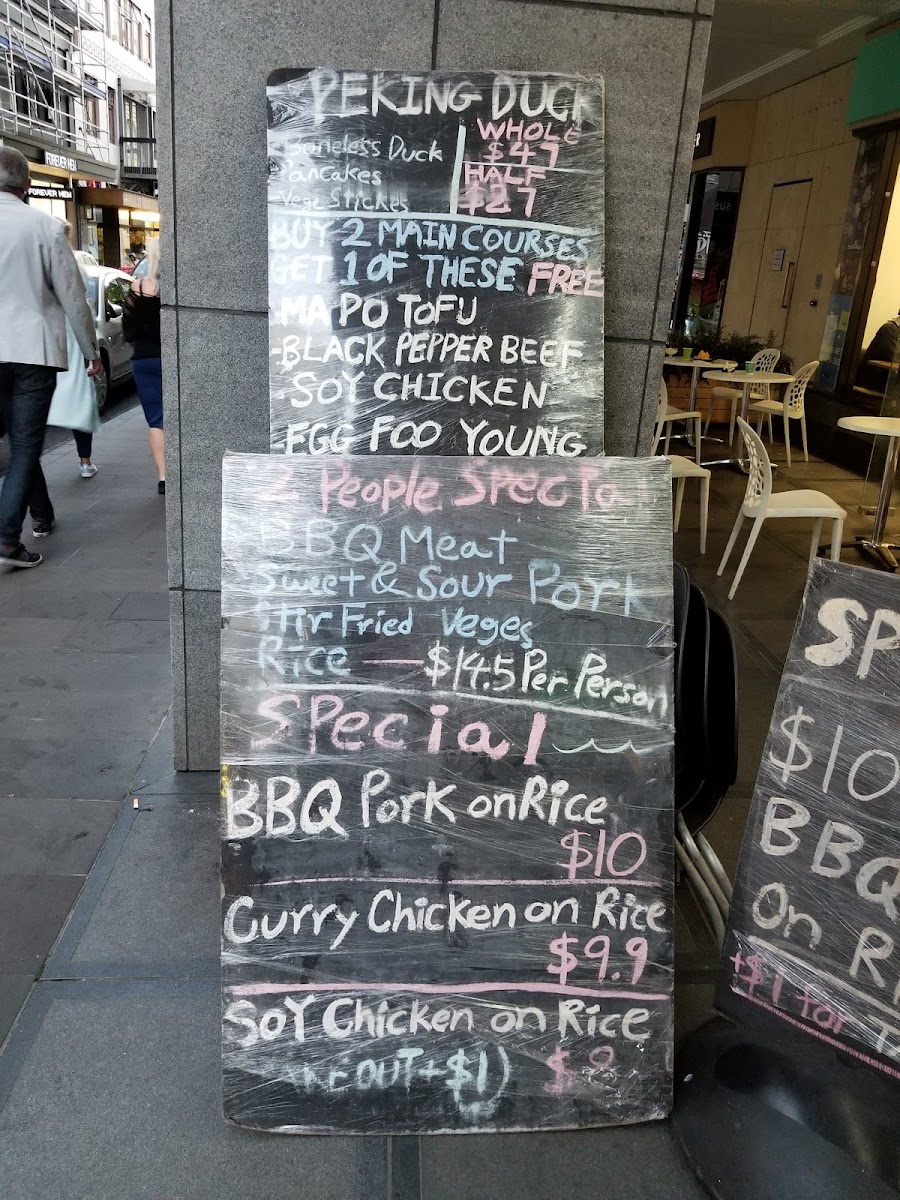 PEKING DUCK
Boneless Duck
Pancakes
Vege Stickes
WHOLE
$47
HALF
$27
BUY 2 MAIN COURSES
GET 1 OF THESE FREE
-MA PO TOFU
-BLACK PEPPER BEEF
-SOY CHICKEN
-EGG FOO YOUNG
2 People Special
BBQ Meat
Sweet & Sour Pork
Stir Fried Veges
Rice — $14.5 Per Person
Special
BBQ Pork on Rice
$10
Curry Chicken on Rice
$9.9
SOY Chicken on Rice
OUT+$1)
SP
$10
BBQ
On R
+$1 for T
FOREVER NEW
FOREVER NEW